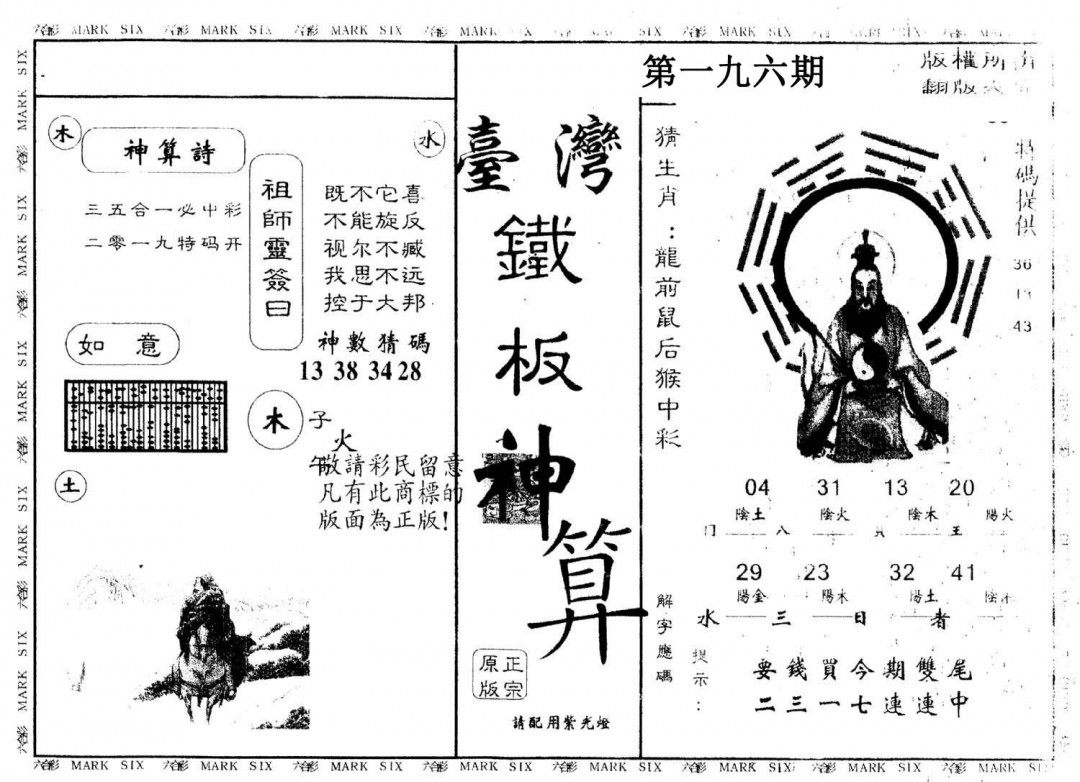 六彩 MARK SIX 六彩 MARK SIX 六彩 MARK SIX 六彩 MARK SIX
第一九六期
版權所有
木
神算詩
水
三五合一必中彩
二零一九特码开
祖師靈簽曰
既不它喜
不能旋反
视尔不臧
我思不远
控于大邦
神數猜碼
13 38 34 28
如意
木
子
火
午
敬請彩民留意
凡有此商標的
版面為正版!
土
臺灣
鐵
板
神
算
正宗
原版
請配用紫光燈
猜生肖：龍前鼠后猴中彩
特碼提供
36
43
04 31 13 20
陰土 陰火 陰木 陽火
八 王
29 23 32 41
陽金 陽木 陽土
水 三 日 者
解字應碼
提示：
要錢買今期雙尾
二三一七連連中
六彩 MARK SIX 六彩 MARK SIX 六彩 MARK SIX 六彩 MARK SIX 六彩 MARK SIX 六彩 MARK SIX 六彩 MARK SIX 六彩 MARK SIX